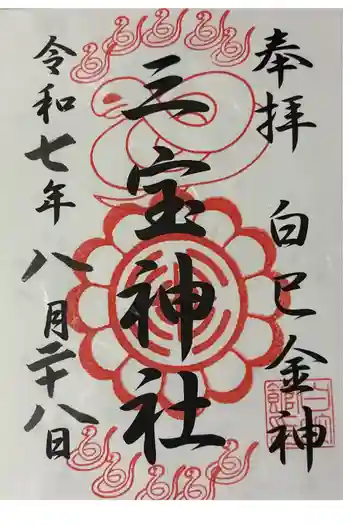 奉拝
白巳金神
三宝神社
令和七年八月二十八日